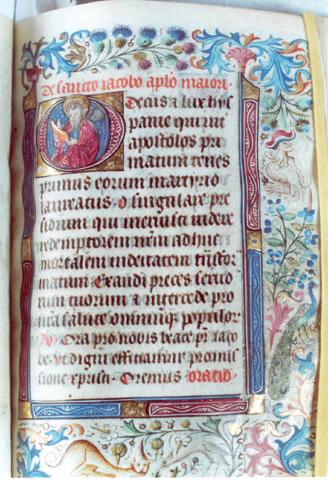 De sancto iacobo aplo maiori.
O decus & lux his
panie qui int
apostolos pri
matum tenes
primus eorum martyrio
laureatus. o singulare pre
sidium qui meruisti videre
redemptorem nrm adhuc
mortalem in deitatem trasfor
matum. Exaudi preces servo
rum tuorum & intercede pro
nra salute omniumq populor.
Ora pro nobis beate pr iaco
be. vt digni efficiamur promis
sione xpristi. Oremus. oratio